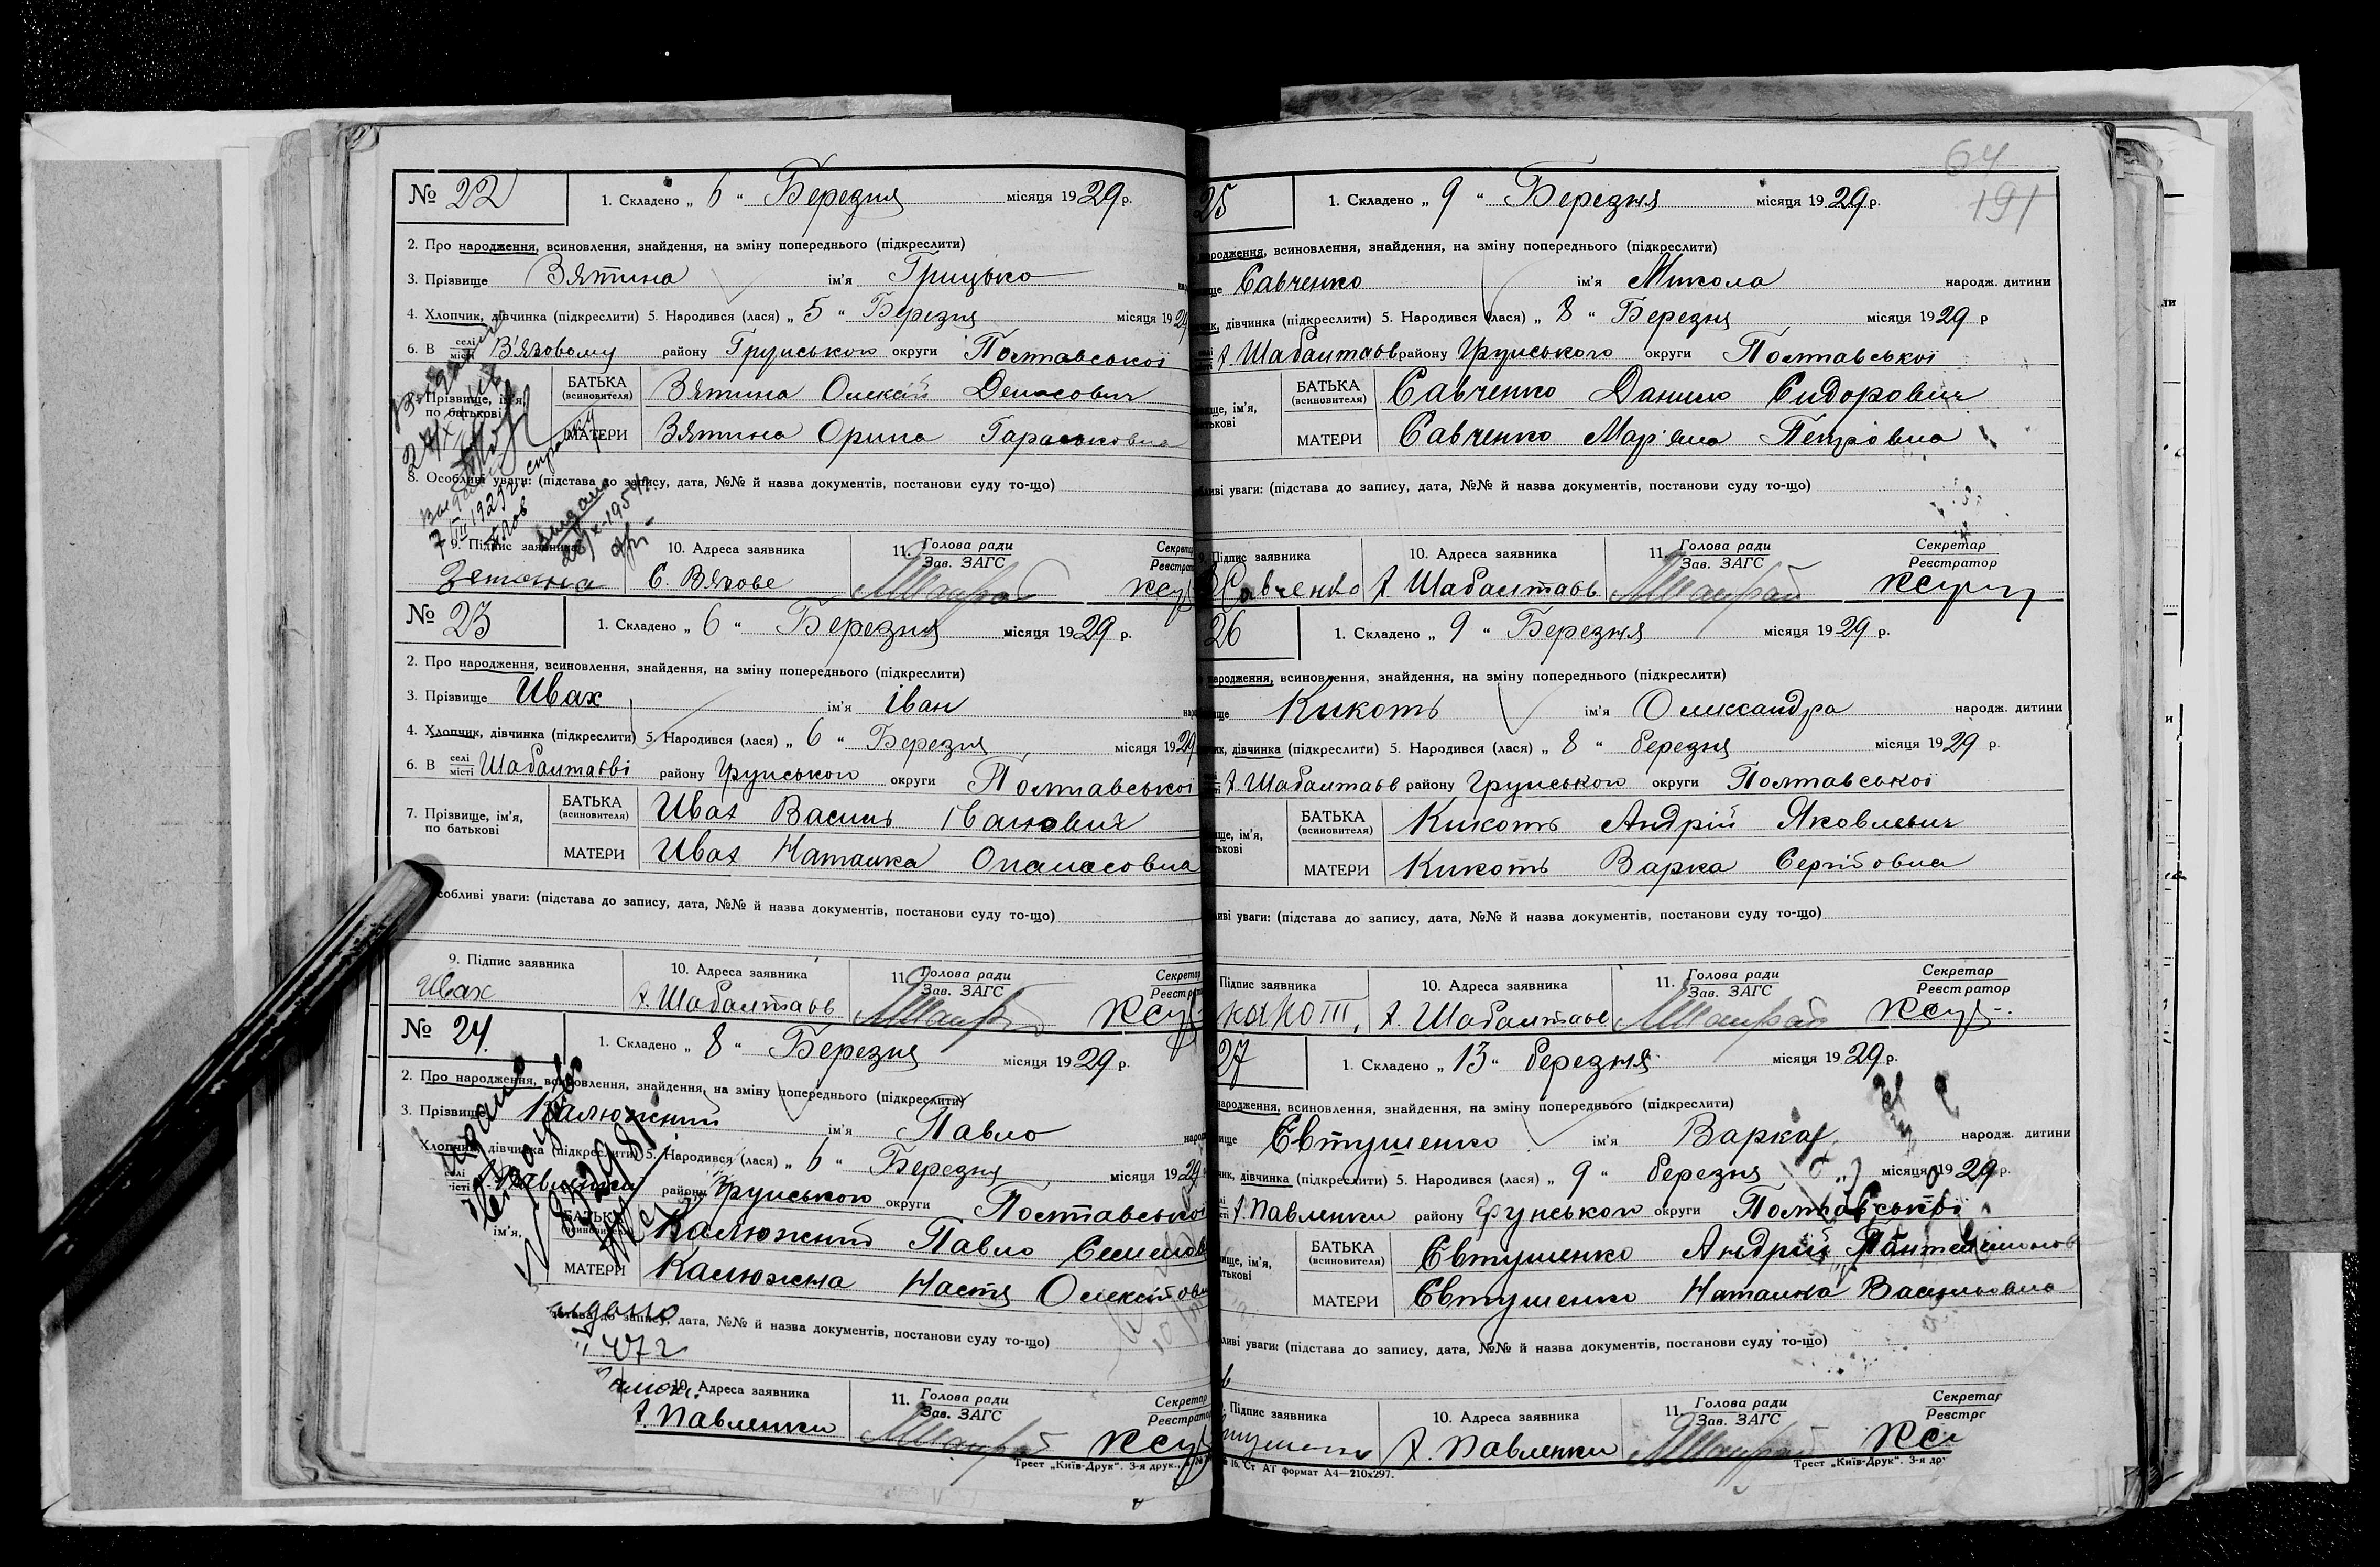 № 22
1. Складено „ 6 " Березня місяця 1929 р.
2. Про народження, всиновлення, знайдення, на зміну попереднього (підкреслити)
3. Прізвище Зятина ім'я Грицько
4. Хлопчик, дівчинка (підкреслити) 5. Народився (лася) „ 5 " Березня місяця 1929
6. В селі місті В'язовому району Грунського округи Полтавської
7. Прізвище, ім'я, по батькові
БАТЬКА (всиновителя) Зятина Олексій Денисович
МАТЕРИ Зятина Орина Тараськовна
8. Особливі уваги: (підстава до запису, дата, №№ й назва документів, постанови суду то-що)
9. Підпис заявника 10. Адреса заявника 11. Голова ради Зав. ЗАГС Секретар Реєстра
С. Вязове
№ 23
1. Складено „ 6 " Березня місяця 1929 р.
2. Про народження, всиновлення, знайдення, на зміну попереднього (підкреслити)
3. Прізвище Ивах ім'я Іван
4. Хлопчик, дівчинка (підкреслити) 5. Народився (лася) „ 6 " Березня місяця 1929
6. В селі місті Шабалтаєві району Грунського округи Полтавської
7. Прізвище, ім'я, по батькові
БАТЬКА (всиновителя) Ивах Василь Іванович
МАТЕРИ Ивах Наталка Опанасовна
собливі уваги: (підстава до запису, дата, №№ й назва документів, постанови суду то-що)
9. Підпис заявника 10. Адреса заявника 11. Голова ради Зав. ЗАГС Секретар Реєстра
Ивах х. Шабалтаєв
№ 24.
1. Складено „ 8 " Березня місяця 1929 р.
2. Про народження, всиновлення, знайдення, на зміну попереднього (підкреслити)
3. Прізвище Калюжний ім'я Павло
Хлопчик, дівчинка (підкреслити) 5. Народився (лася) „ 6 " Березня місяця 1929
Павленки району Грунського округи Полтавської
БАТЬКА (всиновителя) Калюжний Павло Семенов
МАТЕРИ Калюжна Настя Олексійовн
до запису, дата, №№ й назва документів, постанови суду то-що)
10. Адреса заявника 11. Голова ради Зав. ЗАГС Секретар Реєстратор
х. Павленки
Трест „Київ-Друк". 3-я друк.,
64
191
25
1. Складено „ 9 " Березня місяця 1929 р.
народження, всиновлення, знайдення, на зміну попереднього (підкреслити)
Савченко ім'я Микола народж. дитини
дівчинка (підкреслити) 5. Народився (лася) „ 8 " Березня місяця 1929 р
х. Шабалтаєв району Грунського округи Полтавської
БАТЬКА (всиновителя) Савченко Данило Сидорович
МАТЕРИ Савченко Мар'яна Петрівна
уваги: (підстава до запису, дата, №№ й назва документів, постанови суду то-що)
9. Підпис заявника 10. Адреса заявника 11. Голова ради Зав. ЗАГС Секретар Реєстратор
Савченко х. Шабалтаєв
26
1. Складено „ 9 " Березня місяця 1929 р.
народження, всиновлення, знайдення, на зміну попереднього (підкреслити)
Кикоть ім'я Олександра народж. дитини
дівчинка (підкреслити) 5. Народився (лася) „ 8 " березня місяця 1929 р.
х. Шабалтаєв району Грунського округи Полтавської
БАТЬКА (всиновителя) Кикоть Андрій Яковлевич
МАТЕРИ Кикоть Варка Сергійовна
уваги: (підстава до запису, дата, №№ й назва документів, постанови суду то-що)
Підпис заявника 10. Адреса заявника 11. Голова ради Зав. ЗАГС Секретар Реєстратор
х. Шабалтаєв
27
1. Складено „ 13 " березня місяця 1929 р.
народження, всиновлення, знайдення, на зміну попереднього (підкреслити)
Євтушенко ім'я Варка народж. дитини
дівчинка (підкреслити) 5. Народився (лася) „ 9 " березня місяця 1929 р.
х. Павленки району Грунського округи Полтавської
БАТЬКА (всиновителя) Євтушенко Андрій Пантелеімонов
МАТЕРИ Євтушенко Наталка Васильовна
уваги: (підстава до запису, дата, №№ й назва документів, постанови суду то-що)
Підпис заявника 10. Адреса заявника 11. Голова ради Зав. ЗАГС Секретар
х. Павленки
16. Ст АТ формат А4—210х297. Трест „Київ-Друк". 3-я др